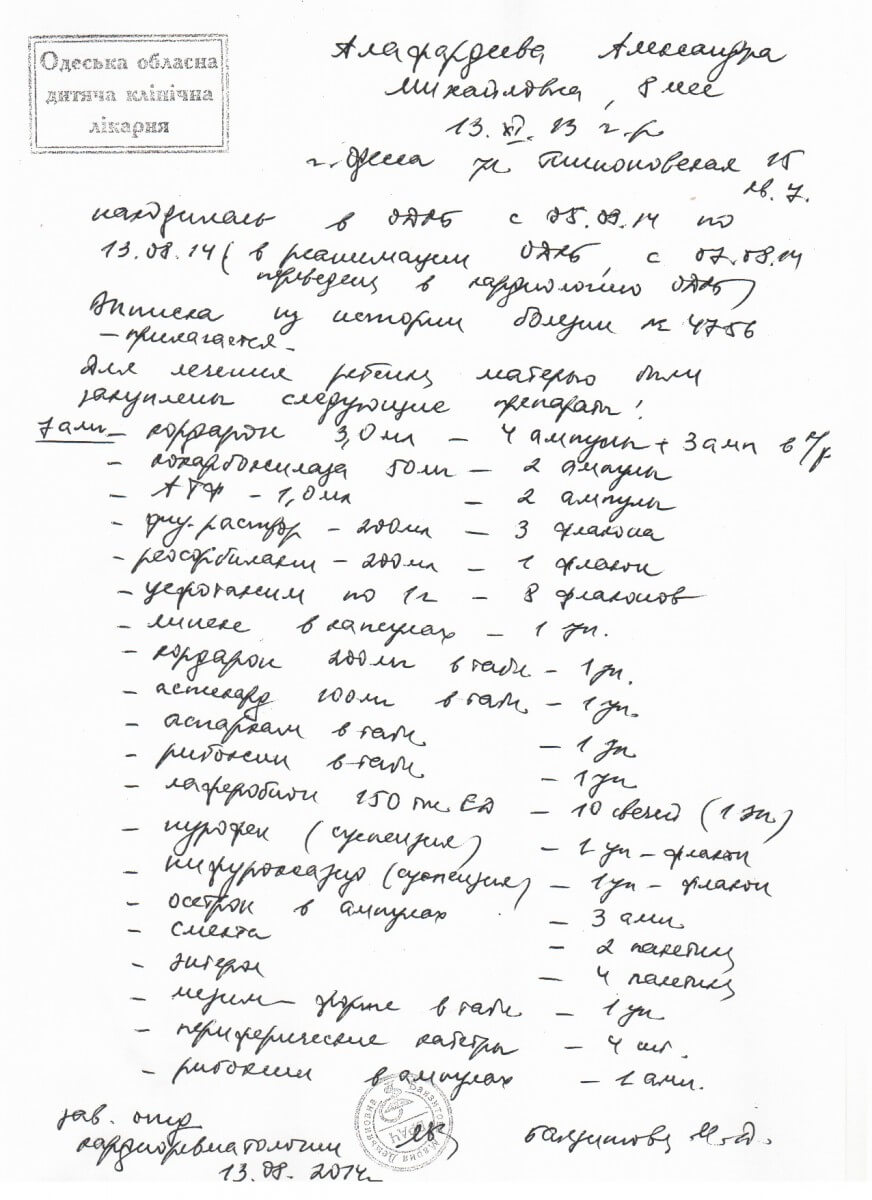 Одеська обласна
дитяча клінічна
лікарня
Александра
Михайловна, 8 мес
13.XI.13 г.р
г. Одесса ул 15
кв. 7.
находилась в ОДКБ с 05.08.14 по
13.08.14 (в реанимации ОДКБ, с 07.08.14
переведена в кардиологию ОДКБ)
Выписка из истории болезни № 4756
– прилагается –
Для лечения ребенка матерью были
закуплены следующие препараты:
7 амп – кордарон 3,0 мл – 4 ампулы + 3 амп в/
– кокарбоксилаза 50 мг – 2 ампулы
– АТФ – 1,0 мл – 2 ампулы
– физ. раствор – 200 мл – 3 флакона
– реосорбилакт – 200 мл – 1 флакон
– цефотаксим по 1 г – 8 флаконов
– линекс в капсулах – 1 уп.
– кордарон 200 мг в табл – 1 уп.
– 100 мг в табл – 1 уп.
– аспаркам в табл – 1 уп
– рибоксин в табл – 1 уп
– лаферобион 150 тыс ЕД – 10 свечей (1 уп)
– нурофен (суспензия) – 1 уп – флакон
– нифуроксазид (суспензия) – 1 уп – флакон
– осетрон в ампулах – 3 амп.
– смекта – 2 пакетика
– 4 пакетика
– мезим – форте в табл – 1 уп
– периферические катетры – 4 шт.
– рибоксин в ампулах – 1 амп.
зав. отд
кардиоревматологии М. Д.
13.08.2014г
ЛІКАР